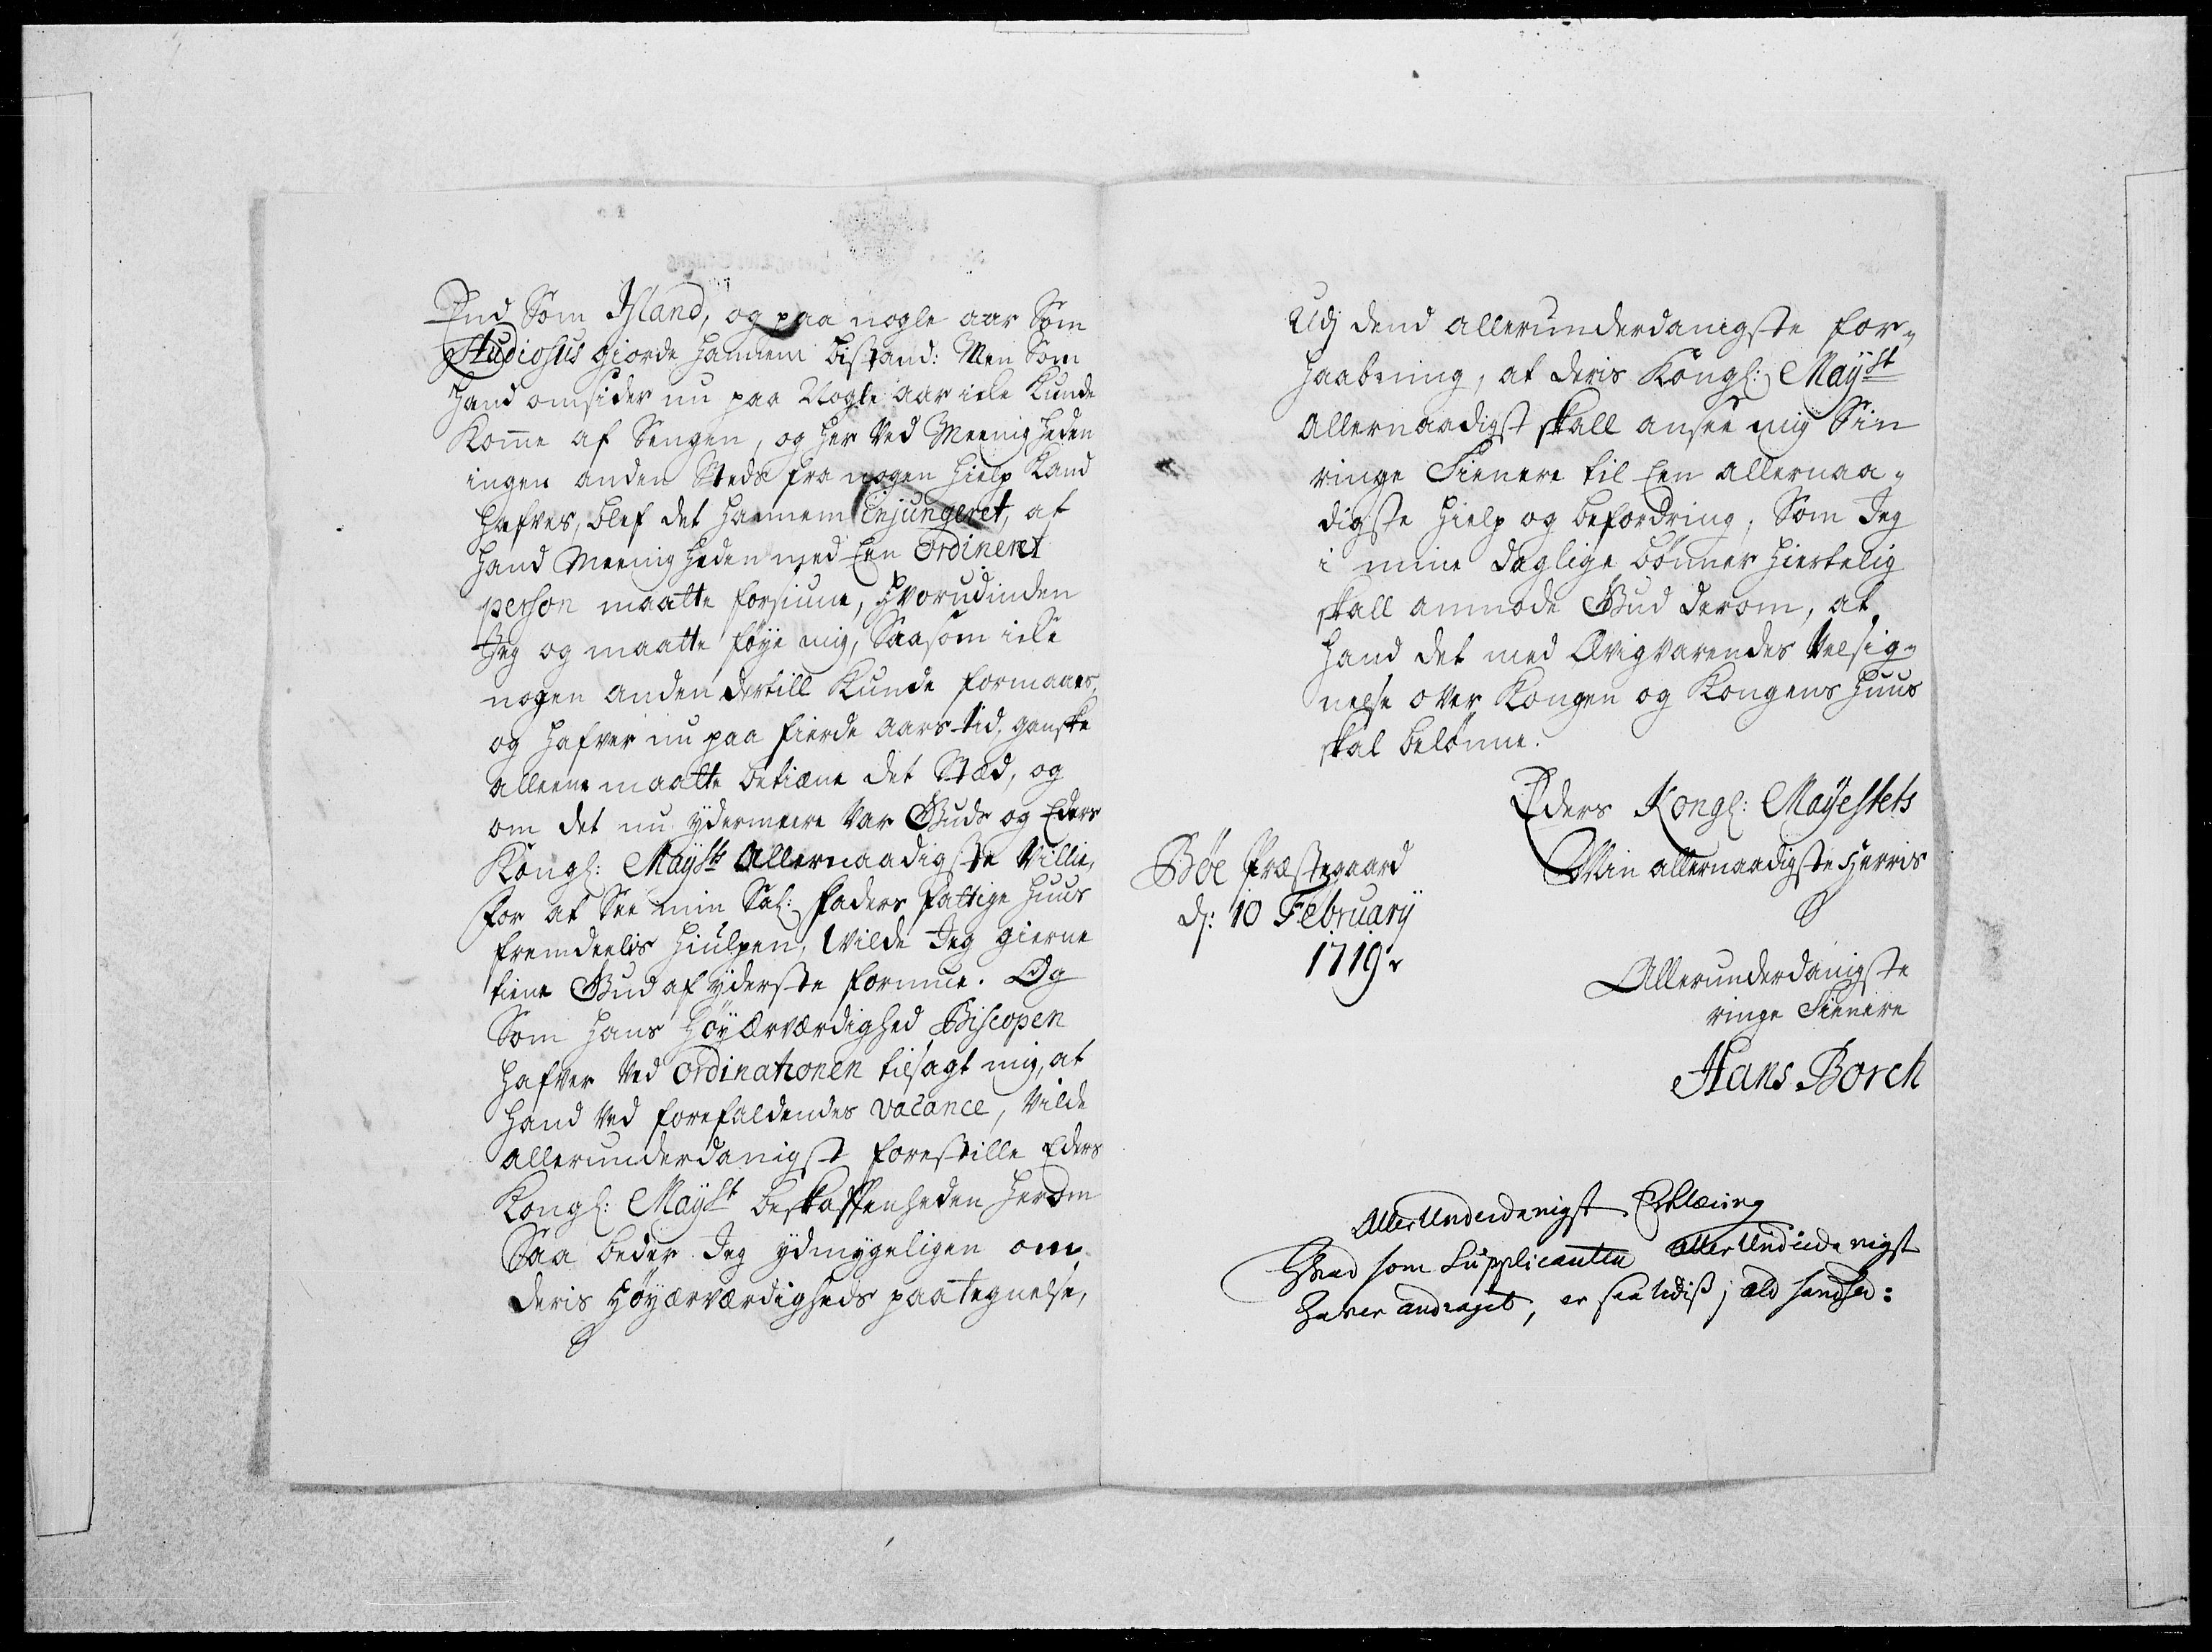 End Som Island, og paa nogle aar Som
Studiosus giorde hannem bistand: Men Som
hand omsider nu paa Nogle aar icke kunde
Komme af Sengen, og her Ved Meenigheden
ingen anden Steds fra nogen hielp kand
hafves, blef det hannem injungeret, at
hand Meenigheden med Een Ordineret
person maatte forsiune, Hvorudinden
Jeg og maatte føye mig, Saasom icke
nogen anden dertill kunde formaaes,
og hafver nu paa fierde aars tid, ganske
alleene maatte betiæne det Stæd, og
om det nu ydermeere Var Guds og Eders
Kongl: Mayts Allernaadigste Villie,
for at See min Sal: faders fattige huus
fremdeelis hiulpen, Wilde Jeg gierne
tiene Gud af yderste formue. Og
Som hans HøyÆrværdighed Biscopen
hafver Ved Ordinationen tilsagt mig, at
hand Ved forefaldendes vacance, Vilde
allerunderdanigst forestille Eders
Kongl: Mayst beskaffenheden herom
Saa beder Jeg ydmygeligen om
deris Høyærværdigheds paategnelse,
Udj dend allerunderdanigste for-
haabning, at deris Kongl: Mayst
Allernaadigst skall ansee mig Sin
ringe Tienere til Een allernaa-
digste hielp og befordring, Som Jeg
i mine daglige bønner hiertelig
skall anmode Gud derom, at
hand det med Ævigvarendes Velsig-
nelse over Kongen og Kongens Huus
skal belønne.
Eders Kongl: Mayestets
Min allernaadigste Herris
Bøe Præstegaard
d: 10 February
1719
Allerunderdanigste
ringe Tienere
Hans Borch
AllerUnderdanigst Erklæring
Hvad som Supplicanten AllerUnderdanigst
haver andraget, er saaledis j ald sandhed: